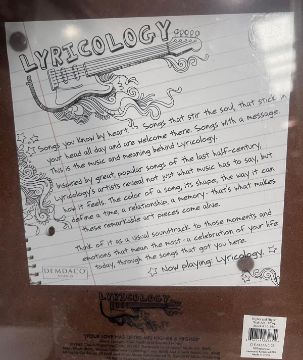 LYRICOLOGY
Songs you know by heart. Songs that stir the soul, that stick in
your head all day and are welcome there. Songs with a message.
This is the music and meaning behind Lyricology.
Inspired by great, popular songs of the last half-century,
Lyricology's artists record not just what music has to say, but
how it feels. The color of a song, its shape, the way it can
define a time, a relationship, a memory - that's what makes
these remarkable art pieces come alive.
Think of it as a visual soundtrack to those moments and
emotions that mean the most - a celebration of your life
today, through the songs that got you here.
Now playing: Lyricology.
DEMDACO
LYRICOLOGY